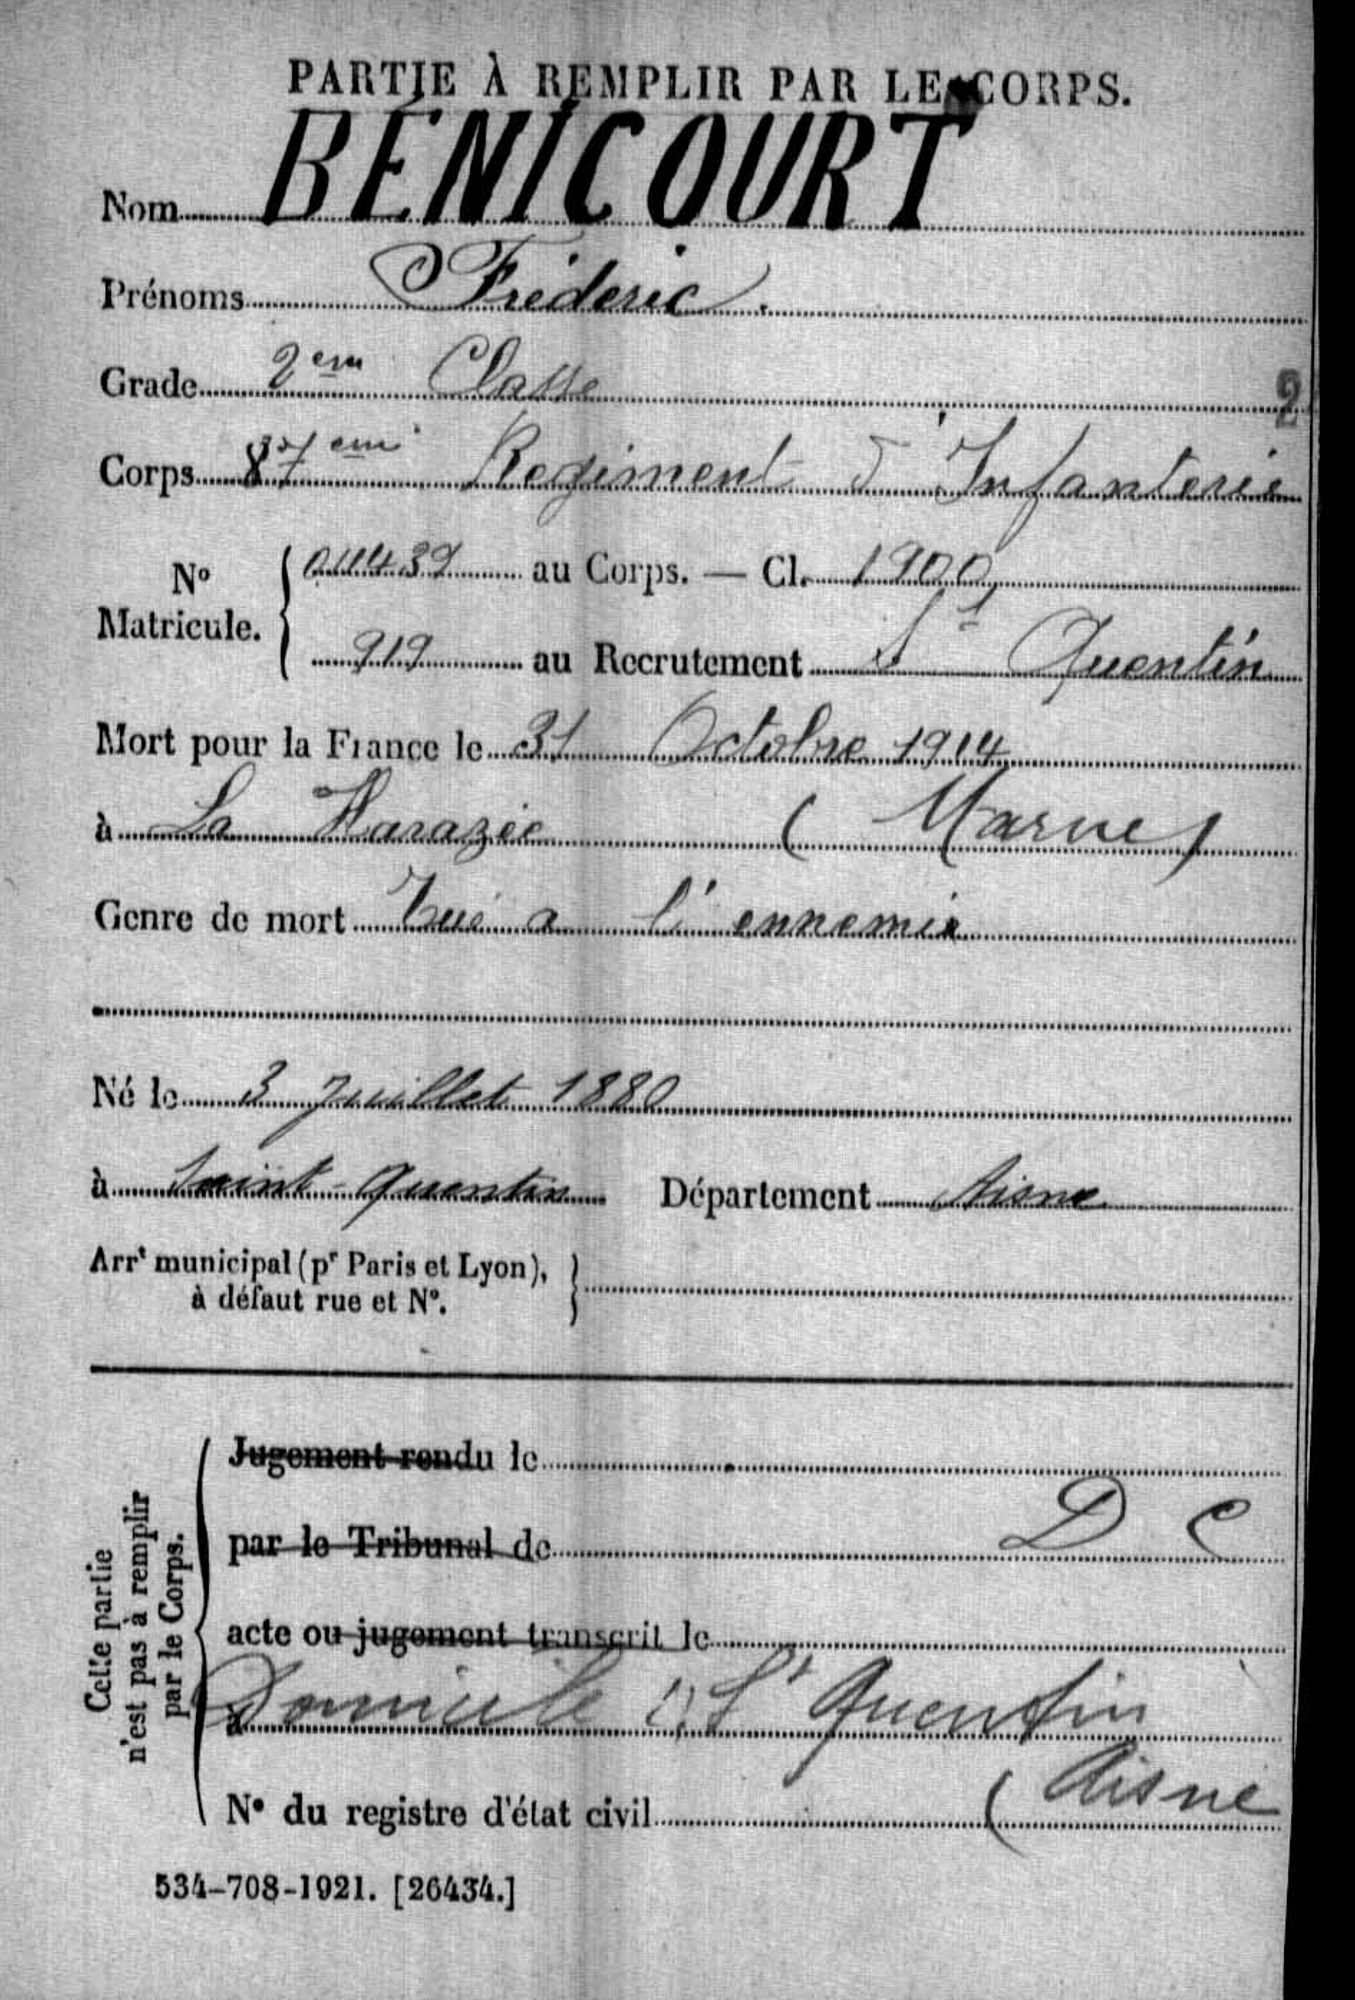 PARTIE À REMPLIR PAR LE CORPS.
Nom BÉNICOURT
Prénoms Fréderic.
Grade 2em Classe
2
Corps 87eme Regiment d'Infanterie
No Matricule. 011439 au Corps. — Cl. 1900
919 au Recrutement St Quentin
Mort pour la France le 31 Octobre 1914
à La Harazée (Marne)
Genre de mort Tué a l'ennemie
Né le 3 Juillet 1880
à Saint-Quentin Département Aisne
Arrt municipal (pr Paris et Lyon),
à défaut rue et No.
Cette partie
n'est pas à remplir
par le Corps.
Jugement rendu le
par le Tribunal de D C
acte ou jugement transcrit le
à Domicile à St Quentin
(Aisne
No du registre d'état civil
534-708-1921. [26434.]